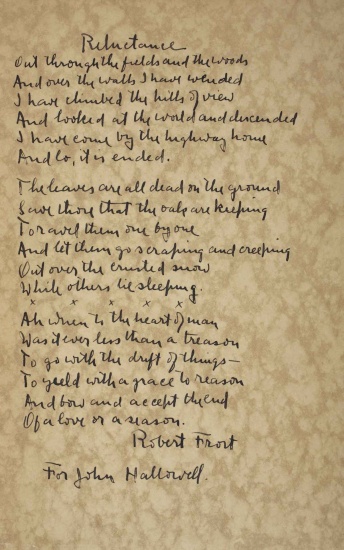 Reluctance
Out through the fields and the woods
And over the walls I have wended
I have climbed the hills of view
And looked at the world and descended
I have come by the highway home
And lo, it is ended.
The leaves are all dead on the ground
Save those that the oak are keeping
To ravel them one by one
And let them go scraping and creeping
Out over the crusted snow
While others lie sleeping.
x x x x x
Ah when to the heart of man
Was it ever less than a treason
To go with the drift of things—
To yield with a grace to reason
And bow and accept the end
Of a love or a season.
Robert Frost
For John Hallowell.